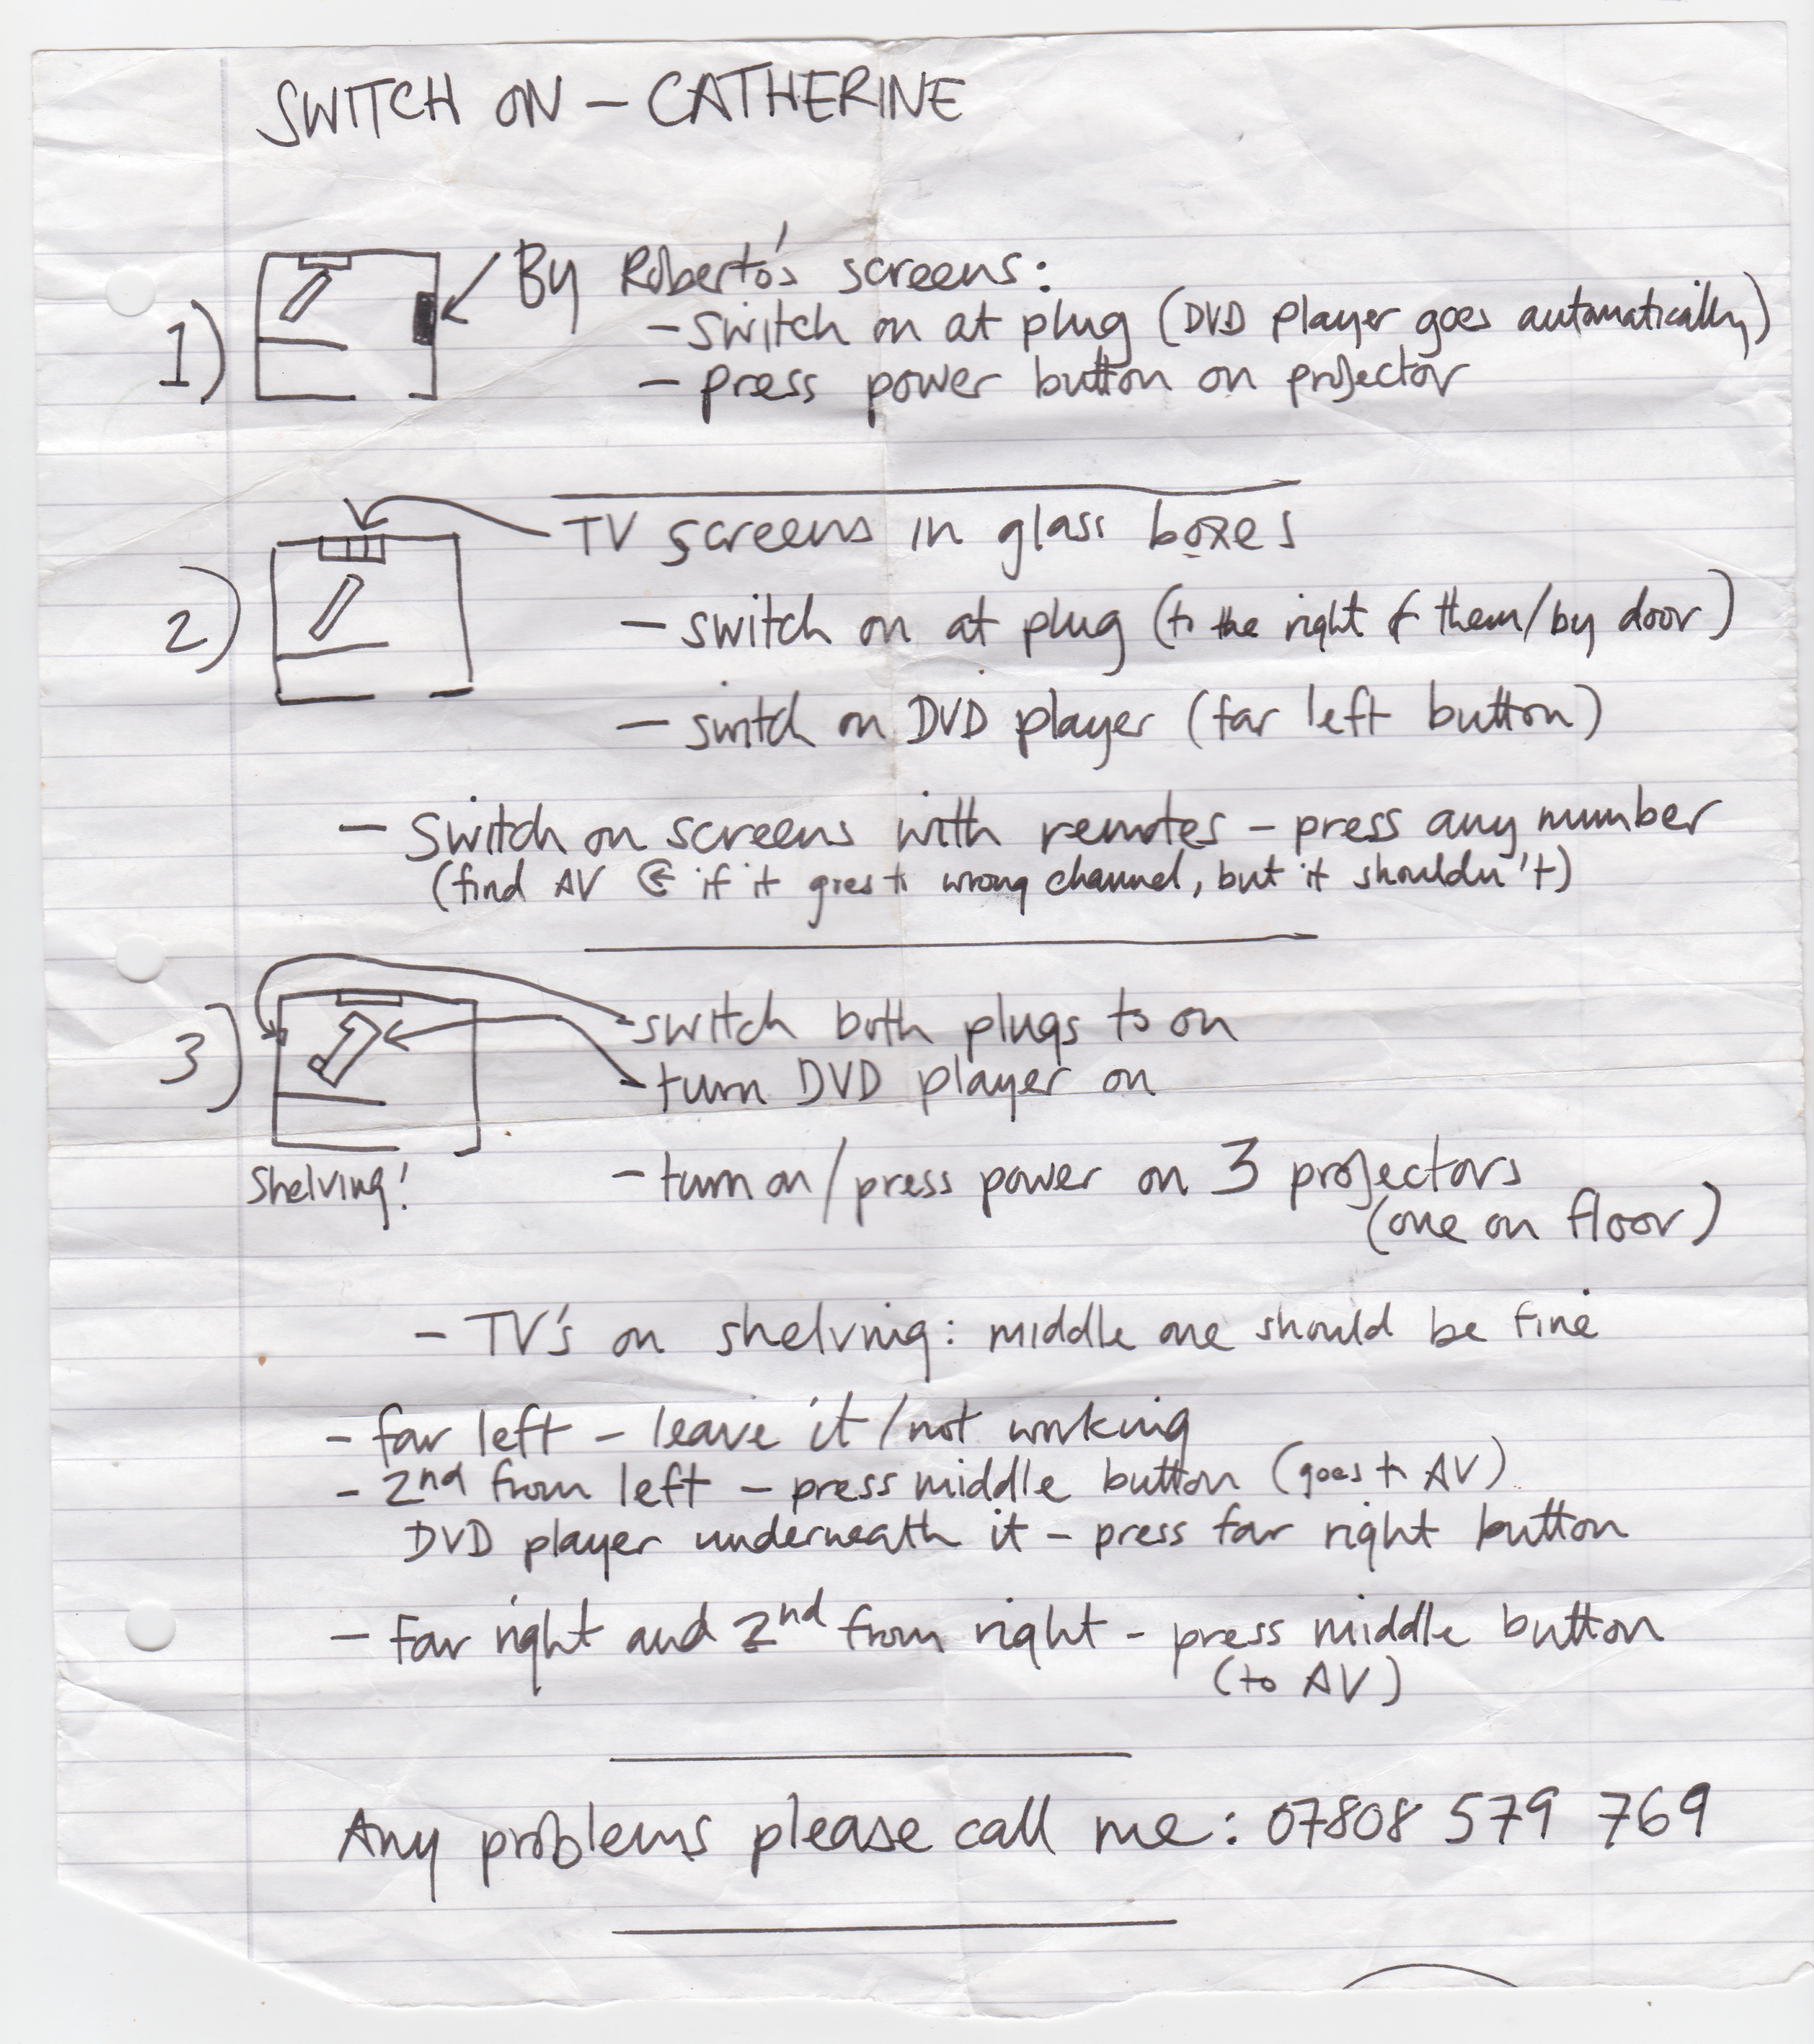 SWITCH ON – CATHERINE
1) By Roberto's screens:
– switch on at plug (DVD player goes automatically)
– press power button on projector
2) TV screens in glass boxes
– switch on at plug (to the right of them/by door)
– switch on DVD player (far left button)
– Switch on screens with remotes – press any number
(find AV if it goes to wrong channel, but it shouldn't)
3) – switch both plugs to on
– turn DVD player on
Shelving!
– turn on/press power on 3 projectors
(one on floor)
– TV's on shelving: middle one should be fine
– far left – leave it/not working
– 2nd from left – press middle button (goes to AV)
DVD player underneath it – press far right button
– Far right and 2nd from right – press middle button
(to AV)
Any problems please call me: 07808 579 769